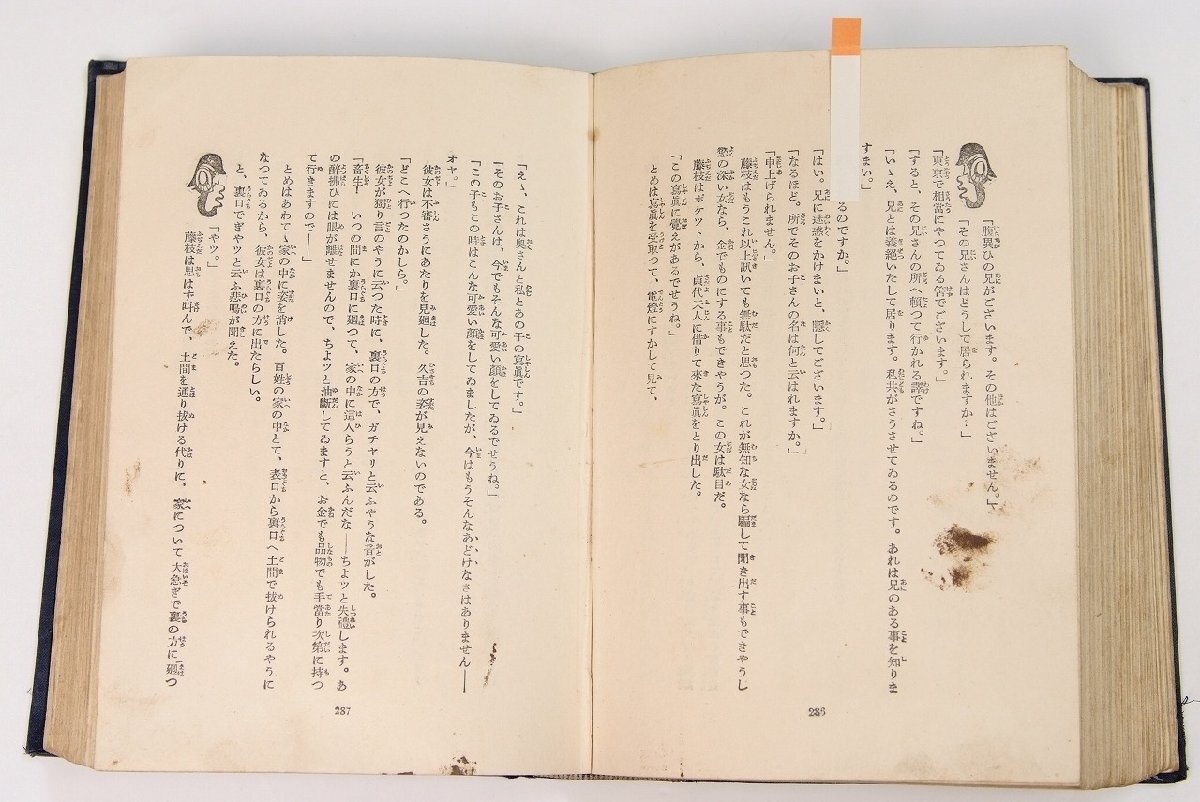 「腹異ひの兄がございます。その他はございません。」
「その兄さんはどうして居られますか？」
「東京で相當にやつてゐる筈でございます。」
「すると、その兄さんの所へ頼つて行かれる譯ですね？」
「いゝえ、兄とは義絶いたして居ります。私共がさうさせてゐるのです。あれは兄のある事を知りますまい。」
るのですか。」
「はい。兄に迷惑をかけまいと、隱してございます。」
「なるほど。所でそのお子さんの名は何と云はれますか。」
「申上げられません。」
藤枝はもうこれ以上訊いても無駄だと思つた。これが無知な女なら騙して聞き出す事もできやうし
慾の深い女なら、金でものにする事もできやうが。この女は駄目だ。
藤枝はポケツトから、貞代夫人に借りて來た寫眞をとり出した。
「この寫眞に覺えがあるでせうね。」
とめは寫眞を受取つて、電燈にすかして見て、
236
「えゝ、これは奥さんと私とあの子の寫眞です。」
「そのお子さんは、今でもそんな可愛い顏をしてゐるでせうね。」
「この子もこの時はこんな可愛い顏をしてゐましたが、今はもうそんなあどけなさはありません――
オヤ。」
彼女は不審さうにあたりを見廻した。久吉の姿が見えないのである。
「どこへ行つたのかしら。」
彼女が獨り言のやうに云つた時に、裏口の方で、ガチヤリと云ふやうな音がした。
「畜生！　いつの間にか裏口に廻つて、家の中に這入らうと云ふんだな――ちよツと失禮します。あ
の醉拂ひには眼が離せませんので、ちよツと油斷してゐますと、お金でも品物でも手當り次第に持つ
て行きますので――」
とめはあわてゝ家の中に姿を消した。百姓の家の中とて、表口から裏口へ土間で抜けられるやうに
なつてゐるから、彼女は裏口の方に出たらしい。
と、裏口でぎやツと云ふ悲鳴が聞えた。
「やツ。」
藤枝は思はず叫んで、土間を通り抜ける代りに、家について大急ぎで裏の方に廻つ
237